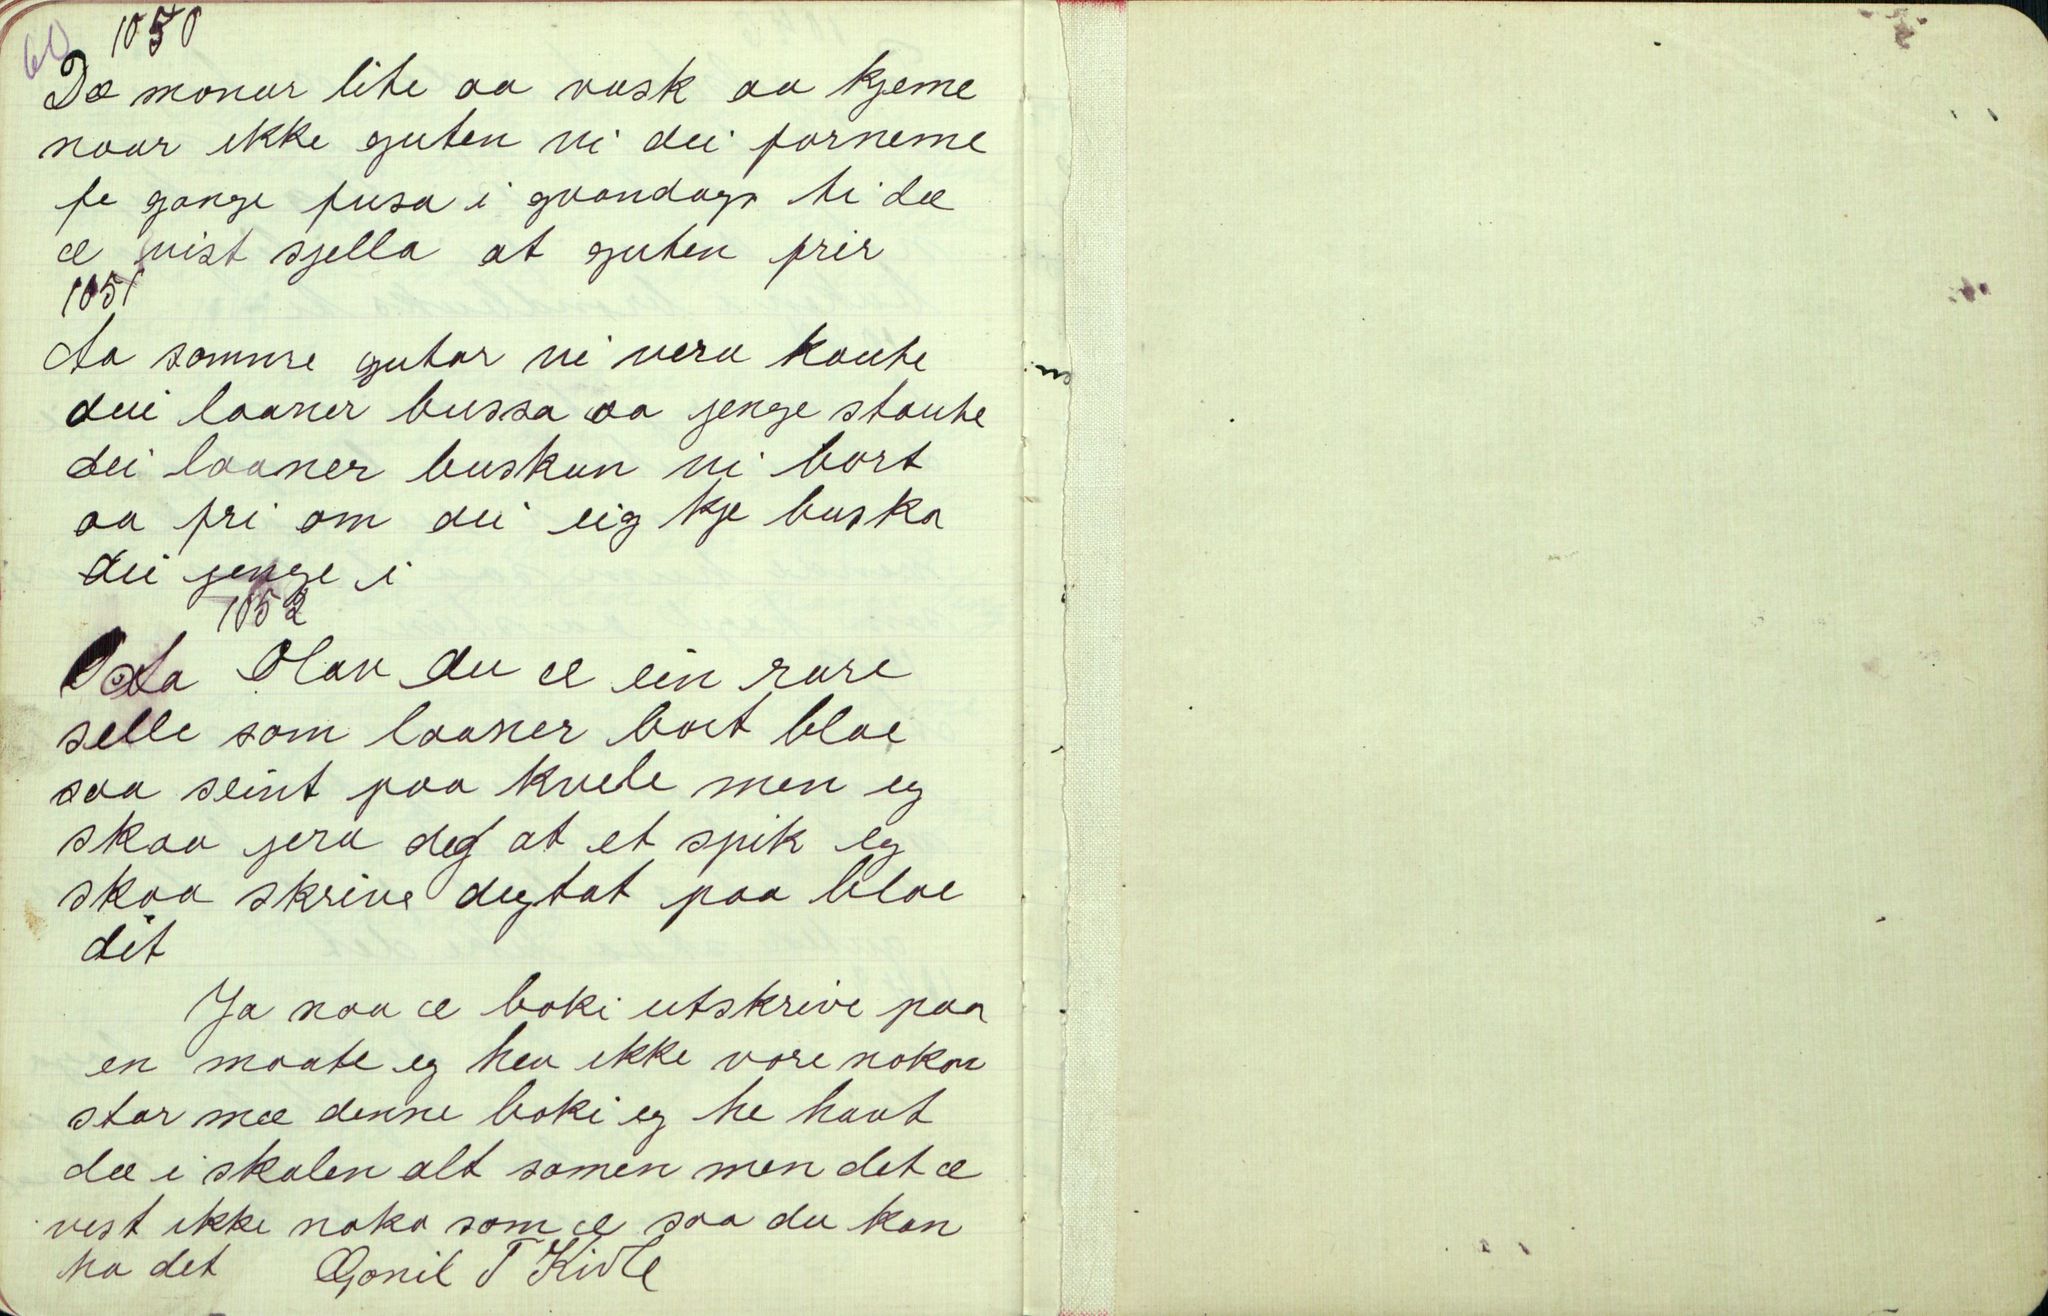 60 1050
Dæ monar lite aa vask aa kjeme
naar ikke guten vi dei forneme
fe gange fusa i gvondags ti dæ
æ vist sjella at guten frir
1051
Aa somme gutar vi vera kaute
dei laaner bussa aa jenge staute
dei laaner buskan vi bort
aa fri om dei eig kje buska
dei jenge i
1052
Aa Olav du æ ein rare
selle som laaner bort bloe
saa seint paa kvele men eg
skaa jera deg at et spik eg
skaa skrive degtat paa bloe
dit
Ja naa æ boki utskrive paa
en maate eg hev ikke vore nokon
stor mæ denne boki eg he havt
dæ i skolen alt somen men det æ
vest ikke noko som æ saa du kan
ha det Gonil T Kivle